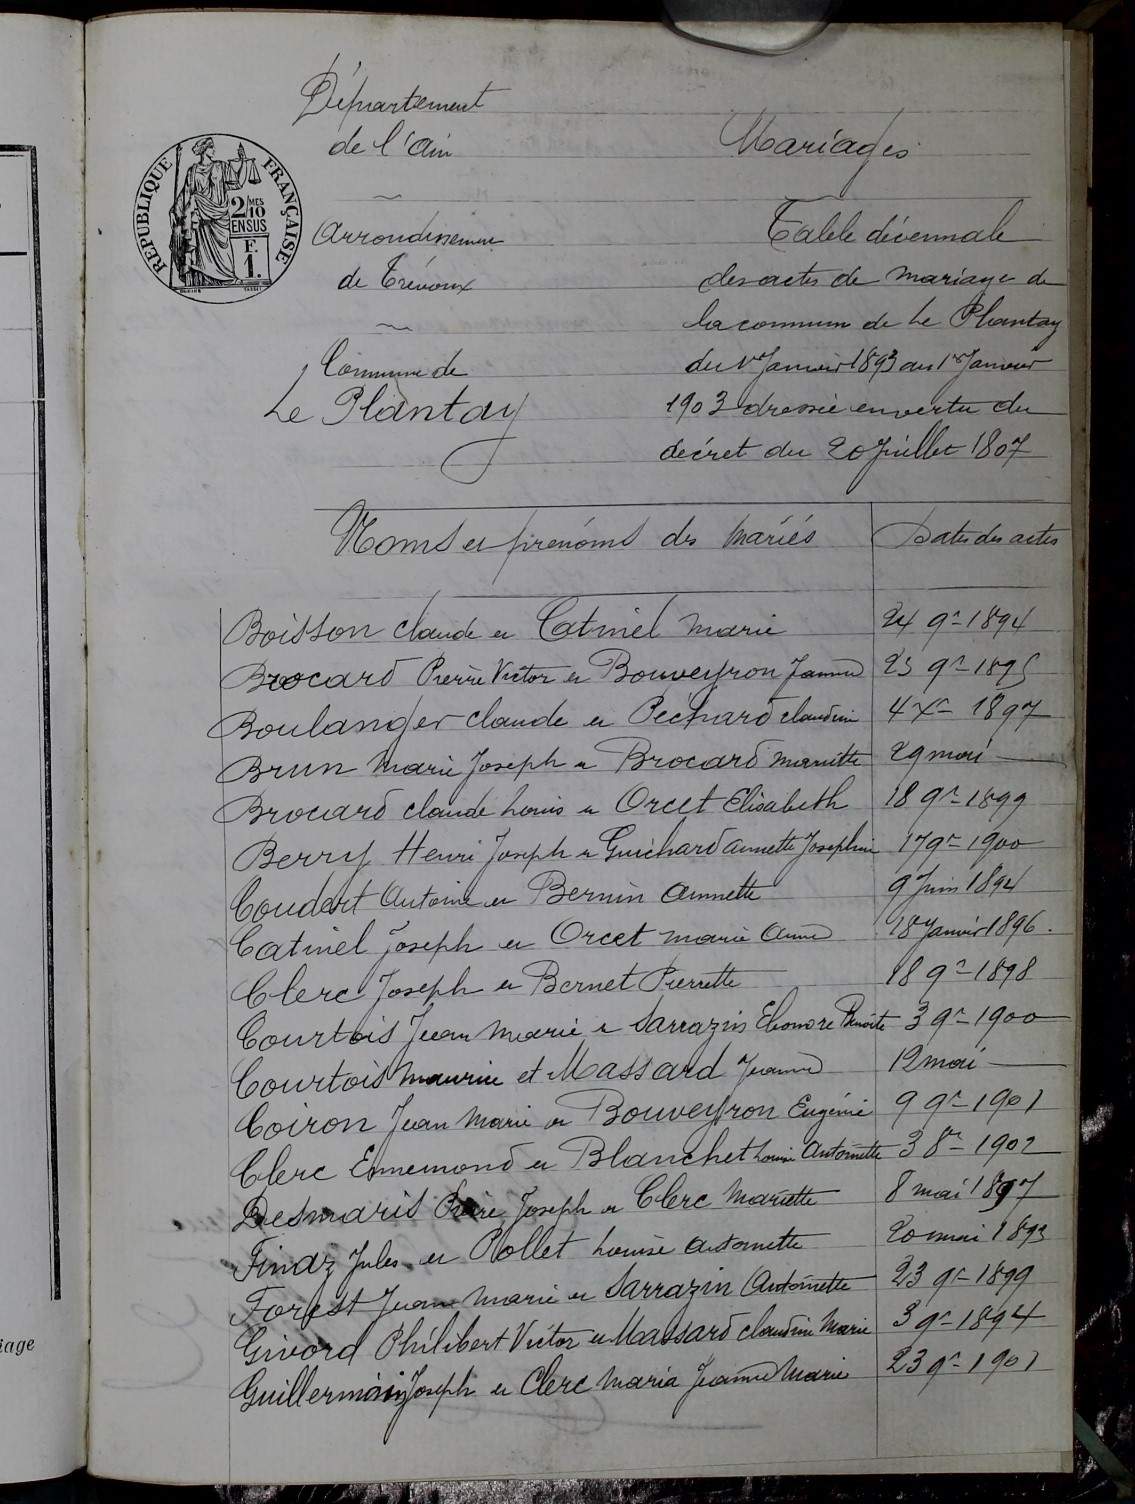 Département
de l'Ain
Mariages
REPUBLIQUE FRANÇAISE
2/10 MES
EN SUS
F.
1.
Arrondissement
de Trévoux
Commune de
Le Plantay
Table décennale
des actes de mariage de
la commune de Le Plantay
du 1er Janvier 1893 au 1er Janvier
1903 dressée en vertu du
décret du 20 Juillet 1807
Noms et prénoms des mariés
Dates des actes
Boisson Claude et Catinel Marie 24 9re 1894
Brocard Pierre Victor et Bouveyron Jeanne 23 9re 1895
Boulanger Claude et Pechard Claudine 4 Xre 1897
Brun Marie Joseph et Brocard Mariette 29 mai
Brocard Claude Louis et Orcet Elisabeth 18 9re 1899
Berry Henri Joseph et Guichard Annette Josephine 17 9re 1900
Coudert Antoine et Bernin Annette 9 Juin 1894
Catinel Joseph et Orcet Marie Anne 18 Janvier 1896.
Clerc Joseph et Bernet Pierrette 18 9re 1898
Courtois Jean Marie et Sarrazin Eleonore Benoite 3 9re 1900
Courtois Maurice et Massard Jeanne 12 mai
Coiron Jean Marie et Bouveyron Eugénie 9 9re 1901
Clerc Ennemond et Blanchet Louise Antoinette 3 8re 1902
Desmaris Pierre Joseph et Clerc Mariette 8 mai 1897
Finaz Jules et Rollet Louise Antoinette 20 mai 1893
Forest Jean Marie et Sarrazin Antoinette 23 9re 1899
Givord Philibert Victor et Massard Claudine Marie 3 9re 1894
Guillermin Joseph et Clerc Maria Jeanne Marie 23 9re 1901
iage